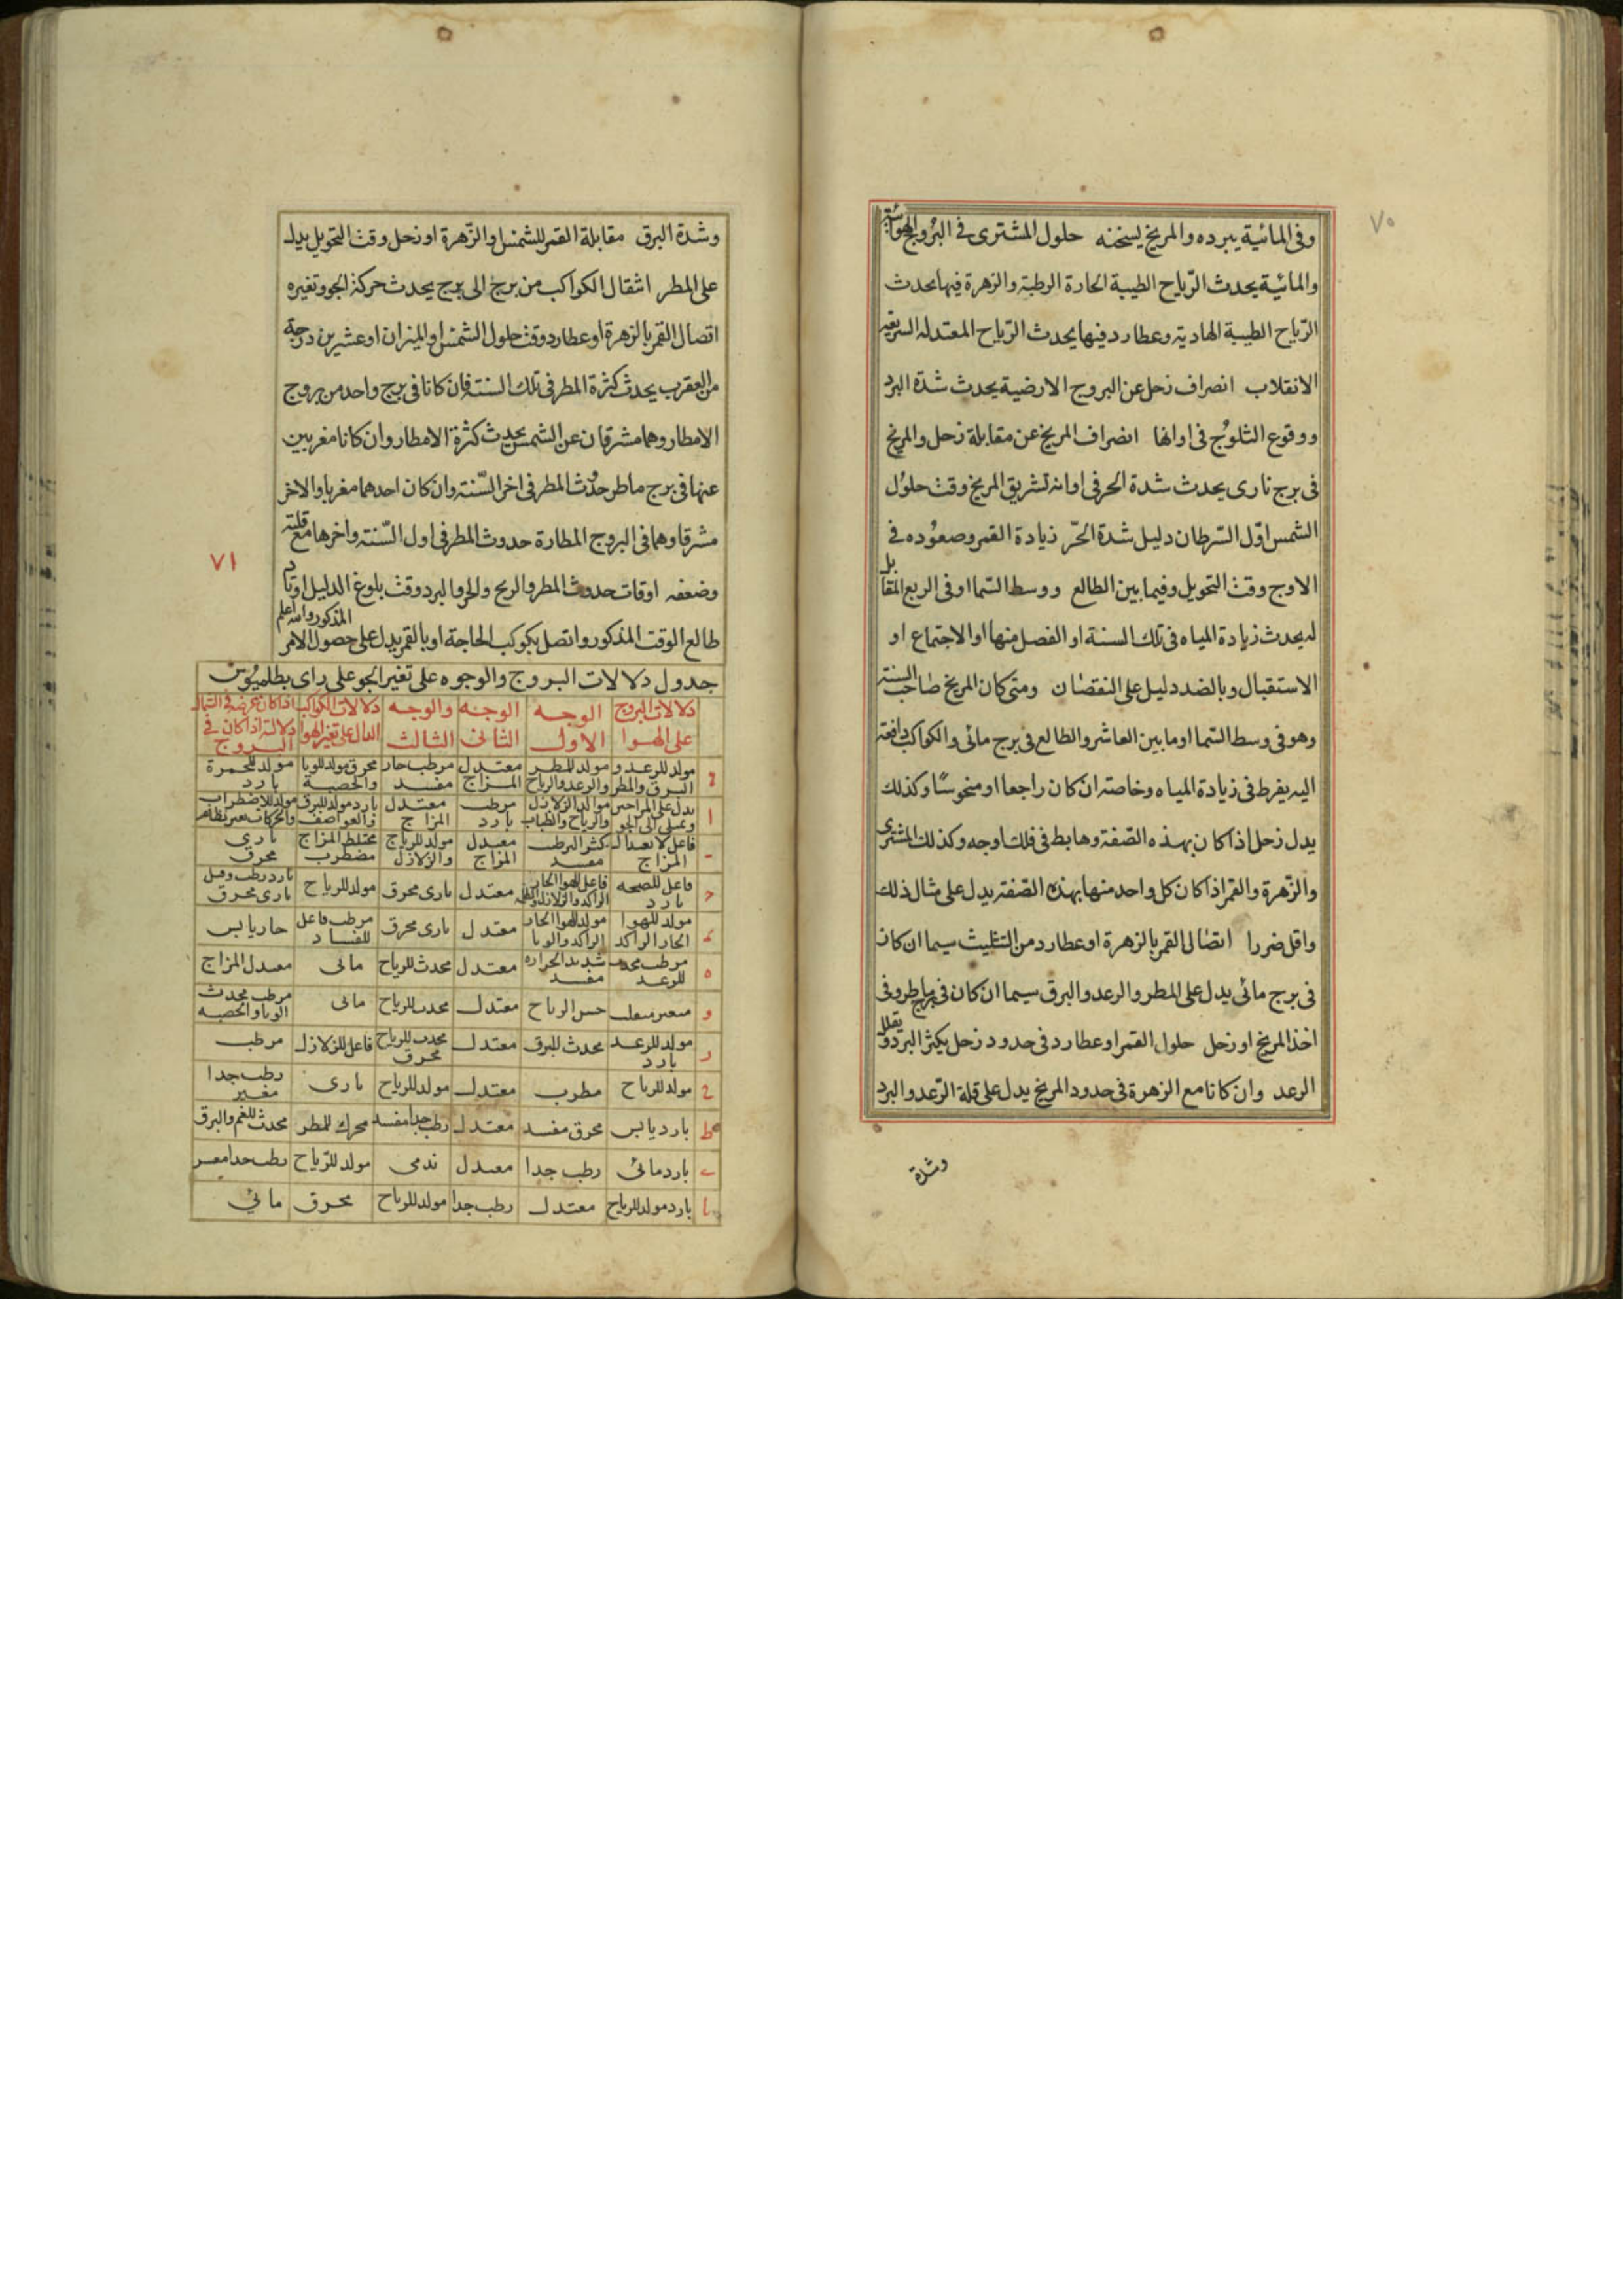 ٧٠
وفى المائية يبرده والمريخ يسخنه حلول المشترى فى البروج الهوائية
والمائية يحدث الرياح الطيبة الحارة الرطبة والزهرة فيها يحدث
الرياح الطيبة الهادية وعطارد فيها يحدث الرياح المعتدله السريعة
الانقلاب انصراف زحل عن البروج الارضية يحدث شدة البرد
ووقوع الثلوج فى اوانها انصراف المريخ عن مقابلة زحل والمريخ
فى برج نارى يحدث شدة الحر فى اوانه تشريق المريخ وقت حلول
الشمس اول السرطان دليل شدة الحر زيادة القمر وصعوده فى
الاوج وقت التحويل وفيما بين الطالع ووسط السما او فى الربع المقابل
له يحدث زيادة المياه فى تلك السنة او الفصل منها او الاجتماع او
الاستقبال وبالضد دليل على النقصان ومتى كان المريخ صاحب السنة
وهو فى وسط السما او ما بين العاشر والطالع فى برج مائى والكواكب دافعة
اليه يفرط فى زيادة المياه وخاصته ان كان راجعا او منحوسا وكذلك
يدل زحل اذا كان بهذه الصفة وهابط فى فلك اوجه وكذلك المشترى
والزهرة والقمر اذا كان كل واحد منها بهذه الصفة يدل على مثال ذلك
واقل ضررا اتصال القمر بالزهرة او عطارد من التثليث سيما ان كان
فى برج مائى يدل على المطر والرعد والبرق سيما ان كان فى برج ماطر وفى
اخذ المريخ او زحل حلول القمر او عطارد فى حدود زحل يكثر البرد ويقلل
الرعد وان كانا مع الزهرة فى حدود المريخ يدل على قلة الرعد والبرد
وشدة
وشدة البرق مقابلة القمر للشمس او الزهرة او زحل وقت التحويل يدل
على المطر انتقال الكواكب من برج الى برج يحدث حركة الجو وتغيره
اتصال القمر بالزهرة او عطارد وقت حلول الشمس او الميزان او عشرين درجة
من العقرب يحدث كثرة المطر فى تلك السنة فان كانا فى برج واحد من بروج
الامطار وهما مشرقان عن الشمس يحدث كثرة الامطار وان كانا مغربين
عنها فى برج ماطر حدث المطر فى اخر السنة وان كان احدهما مغربا والاخر
مشرقا وهما فى البروج المطارة حدوث المطر فى اول السنة واخرها مع قلته
٧١
وضعفه اوقات حدوث المطر والريح والحر والبرد وقت بلوغ الدليل اوتاد
طالع الوقت المذكور واتصل بكوكب الحاجة او بالقمر يدل على حصول الامر
المذكور والله اعلم
جدول دلالات البروج والوجوه على تغير الجو على راى بطلميوس
دلالات البروج على الهوا الوجه الاول الوجه الثانى والوجه الثالث دلالات الكواكب الدال على تغير الهوا اذا كان عرضه فى الشمال دلالته اذا كان فى البروج
مولد للرعد والبرق والمطر مولد للمطر والرعد والرياح معتدل المزاج مرطب حار مفسد محرق مولد للوبا والحصبة مولد للحمرة بارد
ا مرطب بارد معتدل المزاج بارد مولد للبرق والعواصف
معتدل المزاج مولد للرياح والزلازل مختلط المزاج مضطرب نارى محرق
فاعل للصحه بارد معتدل نارى محرق مولد للرياح نارى محرق
مولد للهوا الحار الراكد مولد للهوا الحار الراكد والوبا معتدل نارى محرق مرطب فاعل للفساد حار يابس
ه مرطب محدث للرعد شديد الحراره مفسد معتدل محدث للرياح مائى معتدل المزاج
و حسن الرياح معتدل محدث للرياح مائى مرطب محدث الوبا والحصبه
ر مولد للرعد بارد محدث للبرق معتدل محدث للرياح محرق فاعل للزلازل مرطب
ح مولد للرياح مطرب معتدل مولد للرياح نارى رطب جدا مغير
ط بارد يابس محرق مفسد معتدل رطب جدا مفسد محرك للمطر محدث للغيم والبرق
ى بارد مائى رطب جدا معتدل ندى مولد للرياح رطب جدا
يا بارد مولد للرياح معتدل رطب جدا مولد للرياح محرق مائي